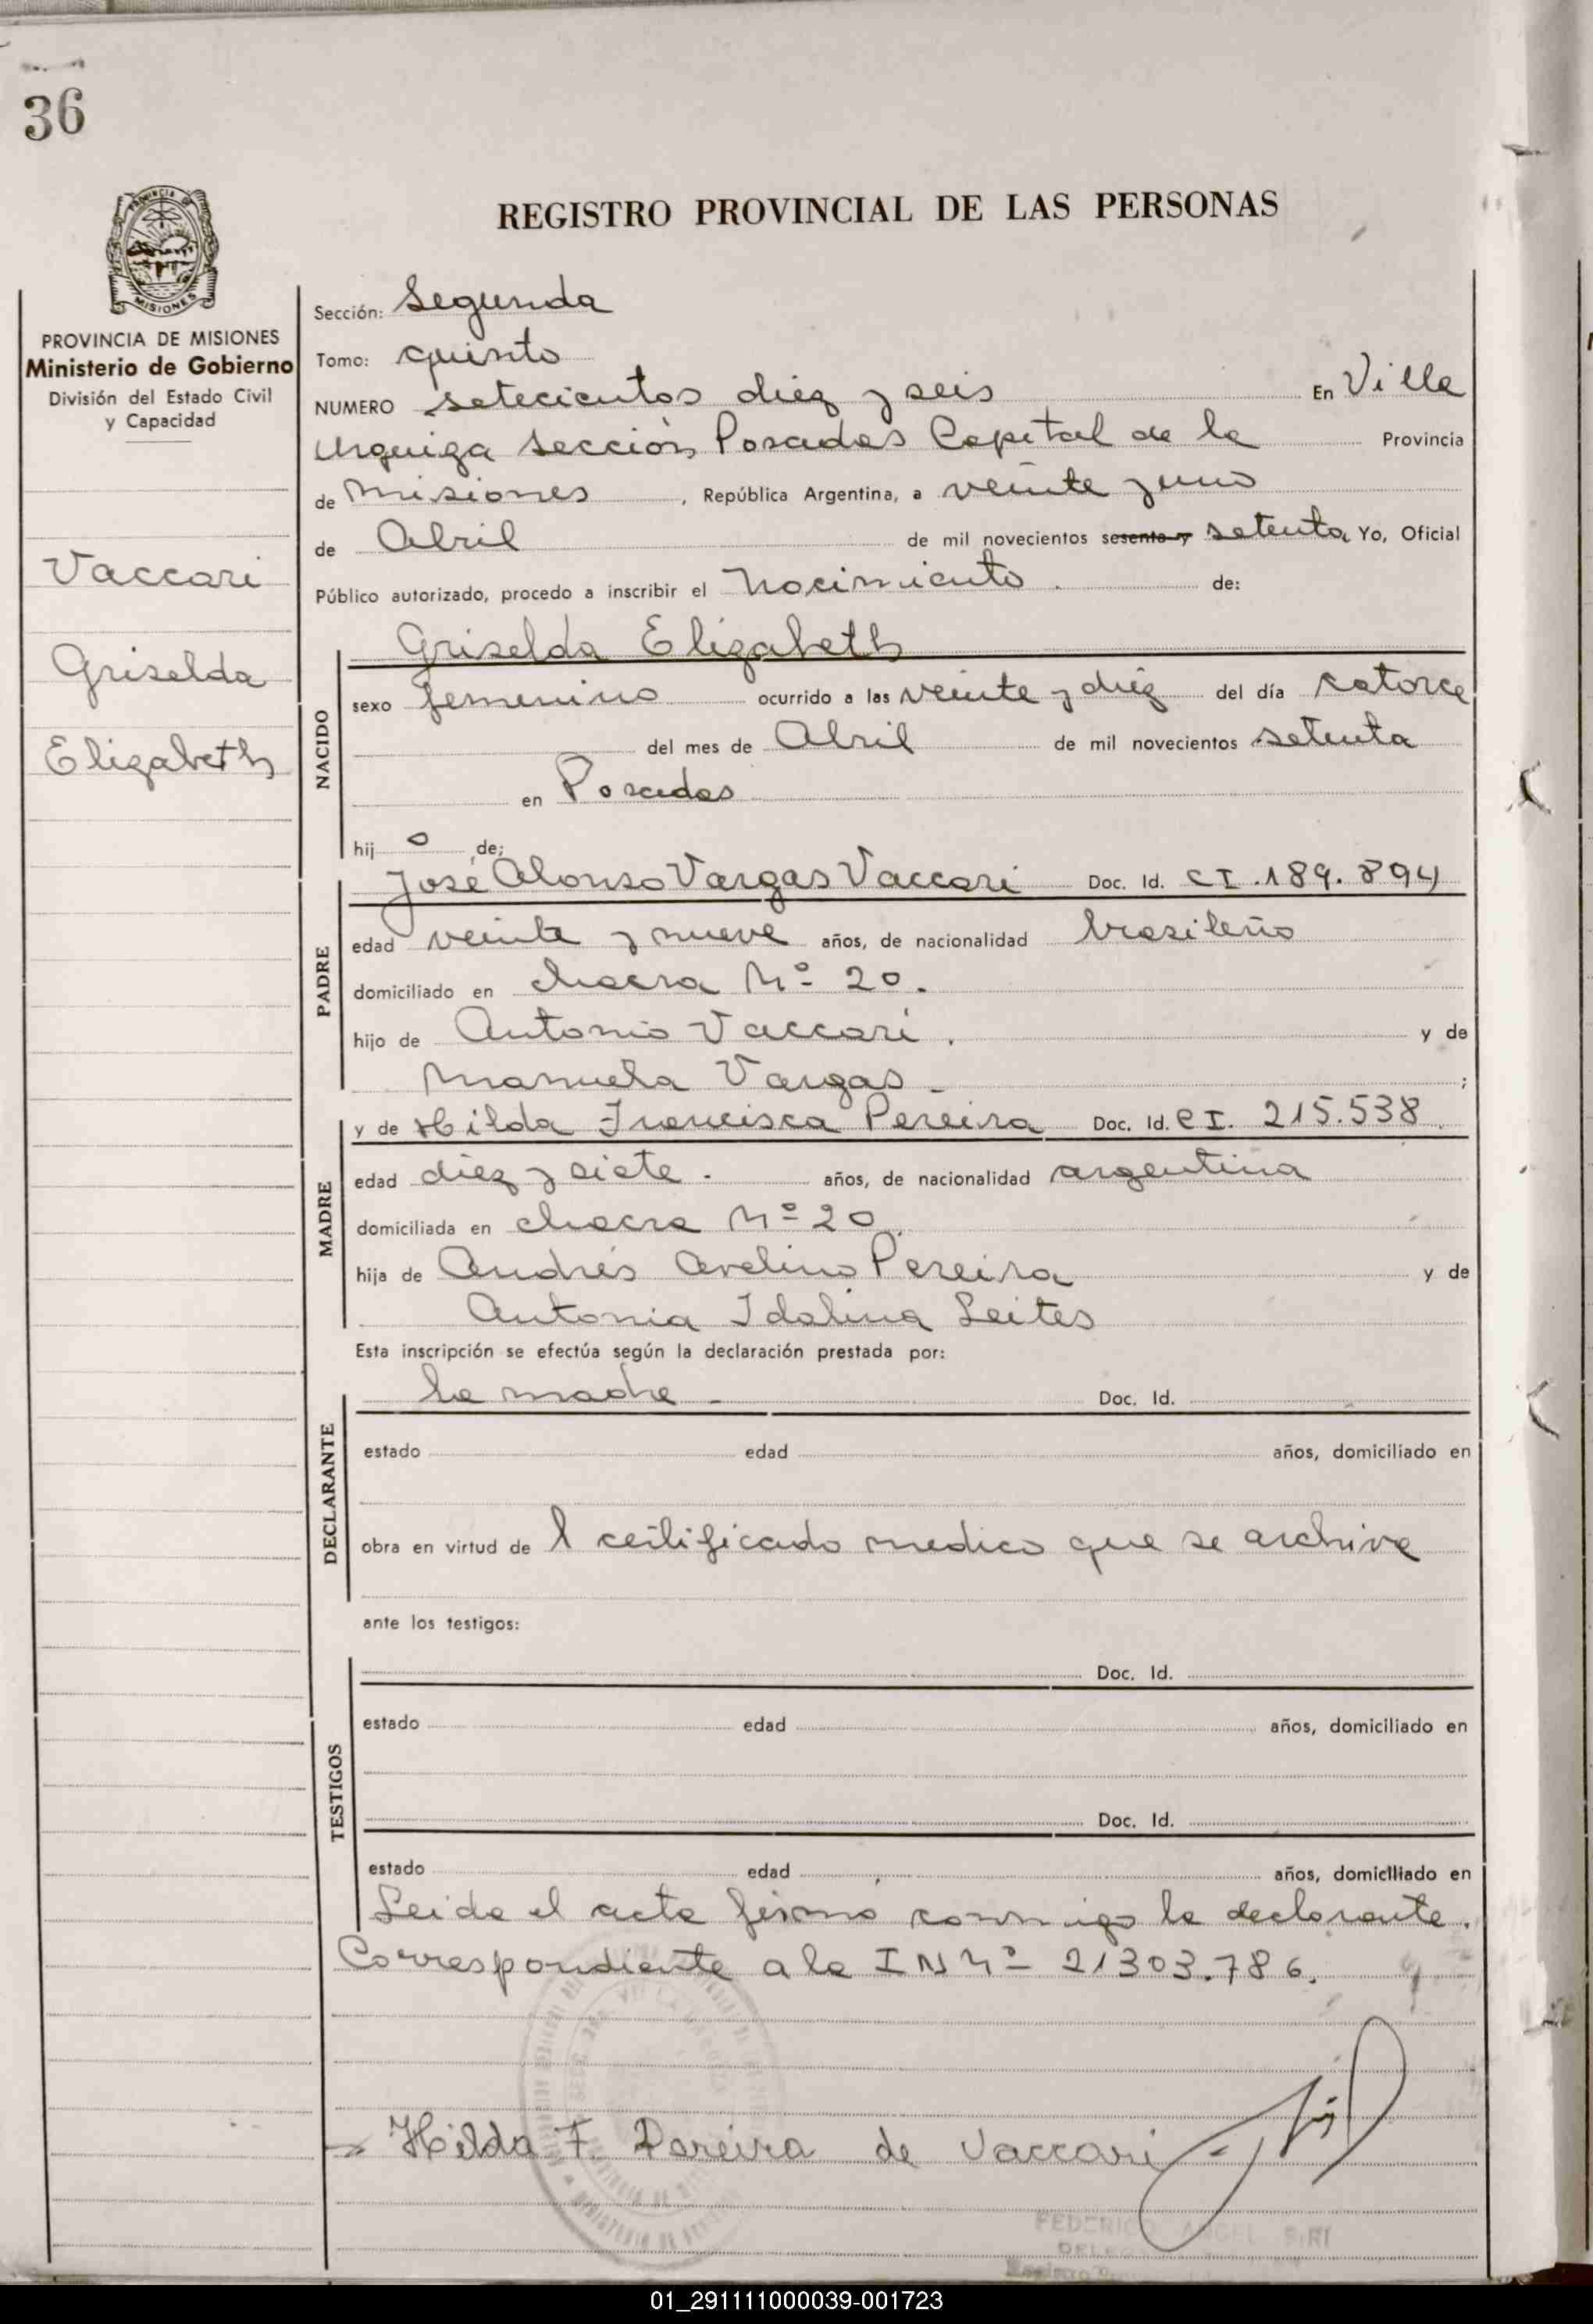 36
REGISTRO PROVINCIAL DE LAS PERSONAS
PROVINCIA DE MISIONES
Ministerio de Gobierno
División del Estado Civil
y Capacidad
Vaccari
Griselda
Elizabeth
Sección: Segunda
Tomo: quinto
NUMERO setecientos diez y seis En Villa
Urquiza sección Posadas Capital de la Provincia
de Misiones, República Argentina, a veinte y uno
de Abril de mil novecientos sesenta y setenta Yo, Oficial
Público autorizado, procedo a inscribir el nacimiento. de:
NACIDO
Griselda Elizabeth
sexo femenino ocurrido a las veinte y diez del día catorce
del mes de Abril de mil novecientos setenta
en Posadas
hij o de;
PADRE
José Alonso Vargas Vaccari Doc. Id. CI.189.894
edad veinte y nueve años, de nacionalidad brasileño
domiciliado en chacra Nº 20.
hijo de Antonio Vaccari. y de
Manuela Vargas - ;
MADRE
y de Hilda Francisca Pereira Doc. Id. CI. 215.538
edad diez y siete. años, de nacionalidad argentina
domiciliada en chacra Nº 20
hija de Andrés Avelino Pereira y de
Antonia Idalina Leites
Esta inscripción se efectúa según la declaración prestada por:
DECLARANTE
la madre - Doc. Id.
estado edad años, domiciliado en
obra en virtud de l certificado medico que se archiva
ante los testigos:
TESTIGOS
Doc. Id.
estado edad años, domiciliado en
Doc. Id.
estado edad años, domiciliado en
Leida el acta firmó conmigo la declarante.
Correspondiente a la IN Nº 21303.786.
Hilda F. Pereira de Vaccari
FEDERICO ANGEL SIRI
01_291111000039-001723